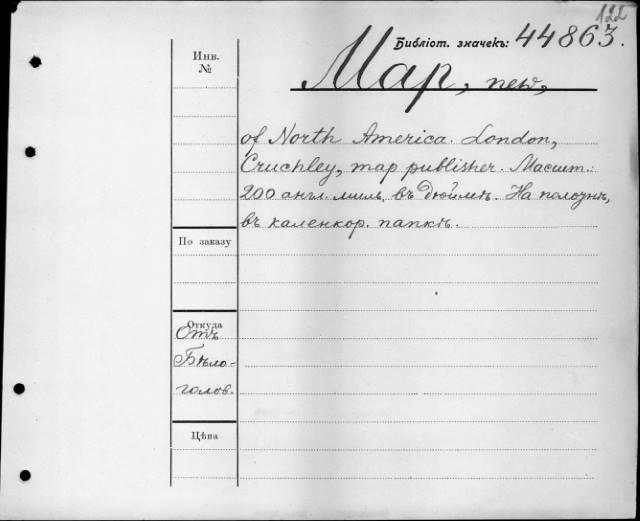 122
Библіот. значекъ: 44863.
Инв.
№
Map, new,
of North America. London,
Cruchley, map publisher. Масшт.:
200 англ. миль въ дюймѣ. На полотнѣ,
въ каленкор. папкѣ.
По заказу
Откуда
Отъ
Бѣло-
голов.
Цѣна